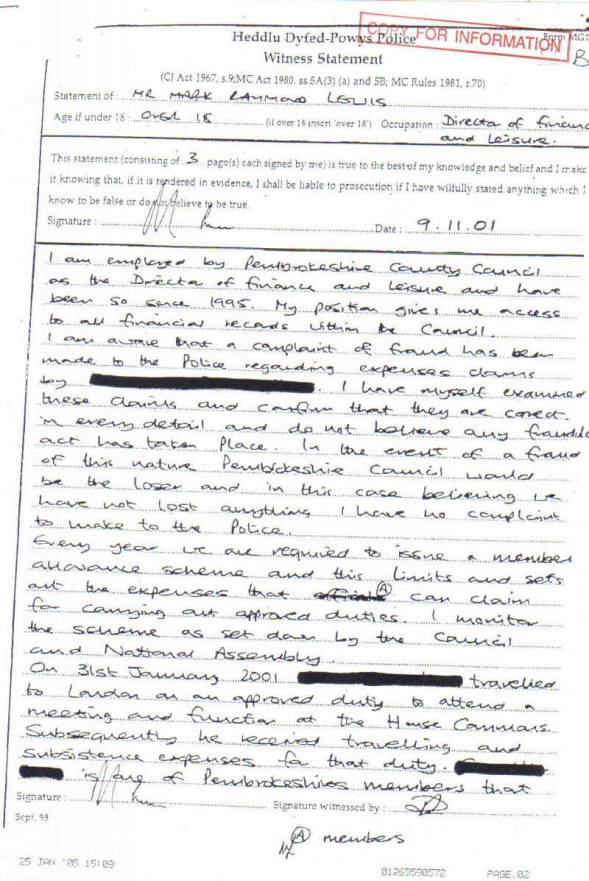 COPY FOR INFORMATION
Heddlu Dyfed-Powys Police
Form MG
B
Witness Statement
(CJ Act 1967, s.9; MC Act 1980, ss.5A(3) (a) and 5B; MC Rules 1981, r.70)
Statement of : MR MARK RAYMOND LEWIS
Age if under 18 : OVER 18 (if over 18 insert 'over 18') Occupation : Director of finance
and Leisure.
This statement (consisting of 3 page(s) each signed by me) is true to the best of my knowledge and belief and I make
it knowing that, if it is tendered in evidence, I shall be liable to prosecution if I have wilfully stated anything which I
know to be false or do not believe to be true.
Signature : Date : 9.11.01
I am employed by Pembrokeshire County Council
as the Director of finance and Leisure and have
been so since 1995. My position gives me access
to all financial records within the Council.
I am aware that a complaint of fraud has been
made to the Police regarding expenses claims
by . I have myself examined
these claims and confirm that they are correct.
in every detail and do not believe any fraudule
act has taken Place. In the event of a fraud
of this nature Pembrokeshire Council would
be the loser and in this case believing we
have not lost anything I have no complaint
to make to the Police.
Every year we are required to issue a members
allowance scheme and this limits and sets
out the expenses that officials (A) can claim
for carrying out approved duties. I monitor
the scheme as set down by the Council
and National Assembly.
On 31st January 2001 travelled
to London on an approved duty to attend a
meeting and function at the House Commons.
Subsequently he received travelling and
subsistence expenses for that duty.
is one of Pembrokeshires members that
Signature : Signature witnessed by :
Sept. 98
(A) members
25 JAN '05 15:09 01269590572 PAGE.02